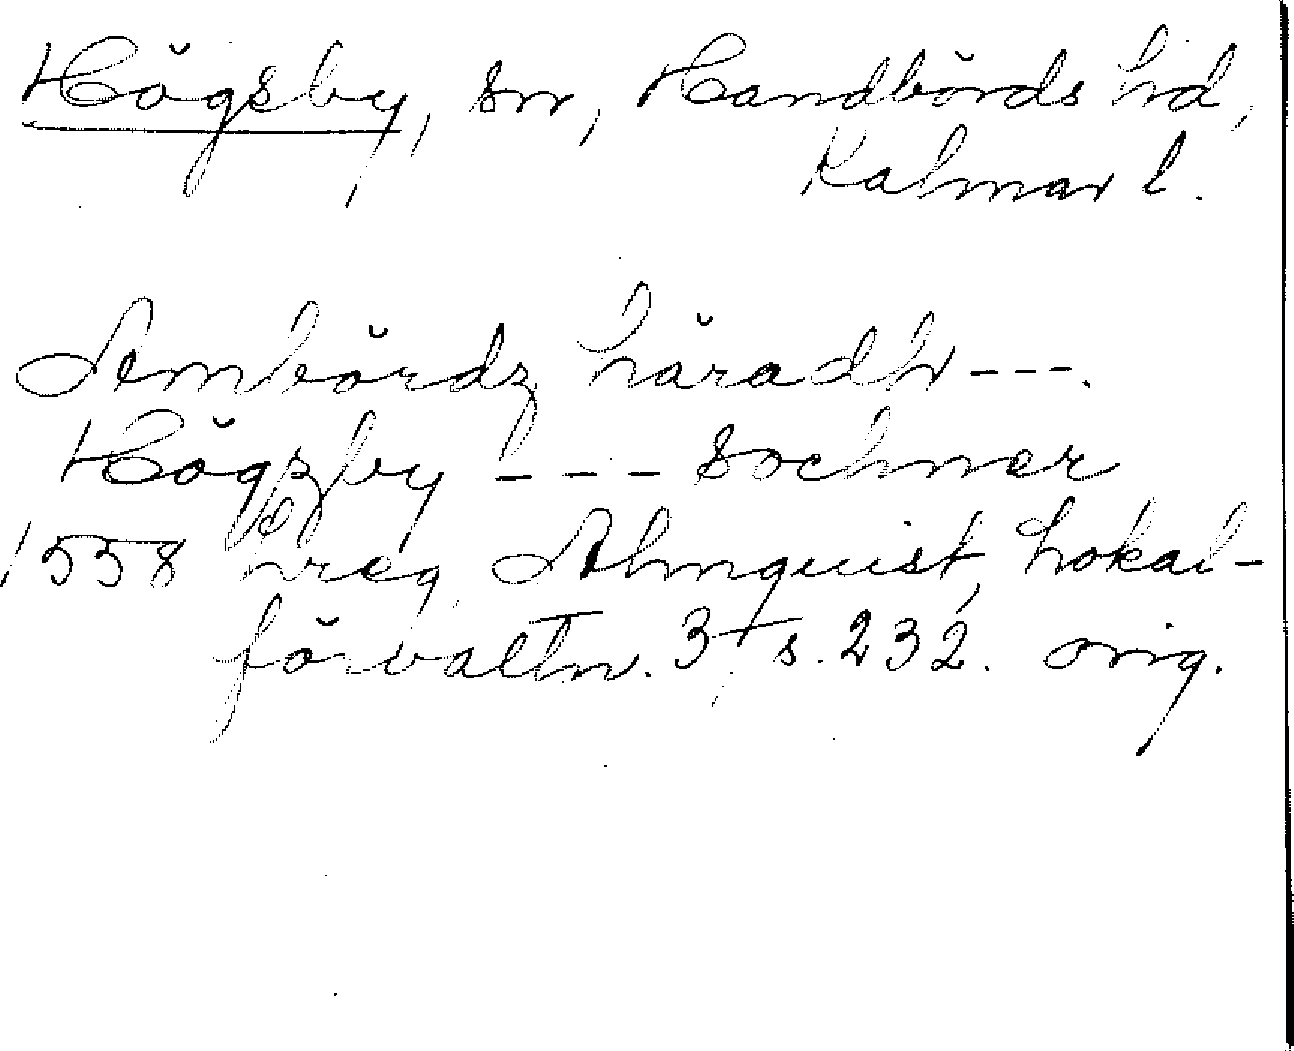 Högsby, sn, Handbörds hd,
Kalmar l.
Anbördz häradh ---.
Högzby --- sochner
1558 hreg, Almquist, Lokal-
förvaltn. 3, s. 232. orig.